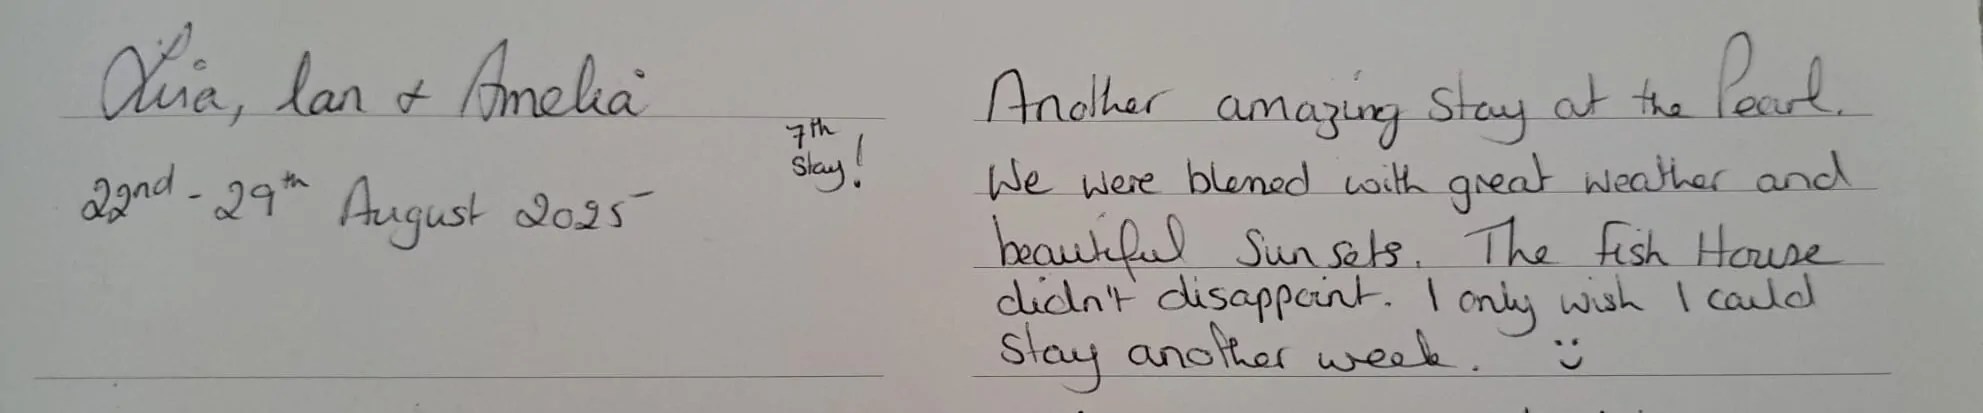 Lisa, Ian & Amelia
7th
Stay!
22nd - 29th August 2025
Another amazing stay at the Pearl.
We were blessed with great weather and
beautiful sunsets. The Fish House
didn't disappoint. I only wish I could
stay another week. :)